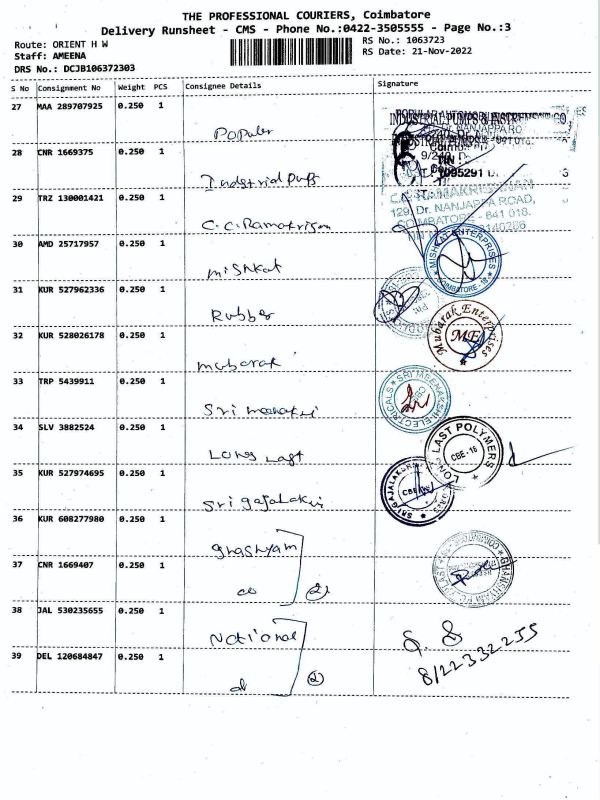 THE PROFESSIONAL COURIERS, Coimbatore
Delivery Runsheet - CMS - Phone No.:0422-3505555 - Page No.:3
Route: ORIENT H W RS No.: 1063723
Staff: AMEENA RS Date: 21-Nov-2022
DRS No.: DCJB106372303
S No Consignment No Weight PCS Consignee Details Signature
27 MAA 289707925 0.250 1
Populer
28 CNR 1669375 0.250 1
Industrial
29 TRZ 130001421 0.250 1
C.C. Ramakrisnn
129, Dr. NANJAPPA ROAD,
COIMBATORE - 641 018.
30 AMD 25717957 0.250 1
mishkat
MISHKAT ENTERPRISES
COIMBATORE-18
31 KUR 527962336 0.250 1
Rubber
32 KUR 528026178 0.250 1
mubarak
Mubarak Enterprises
ME
33 TRP 5439911 0.250 1
Sri meenakshi
SRI MEENAKSHI ELECTRICALS
34 SLV 3882524 0.250 1
Long Last
LONG LAST POLYMERS
CBE-18
35 KUR 527974695 0.250 1
Sri gajalakshmi
36 KUR 608277980 0.250 1
Ghashyam
37 CNR 1669407 0.250 1
do 2
38 JAL 530235655 0.250 1
National
39 DEL 120684847 0.250 1
do 2